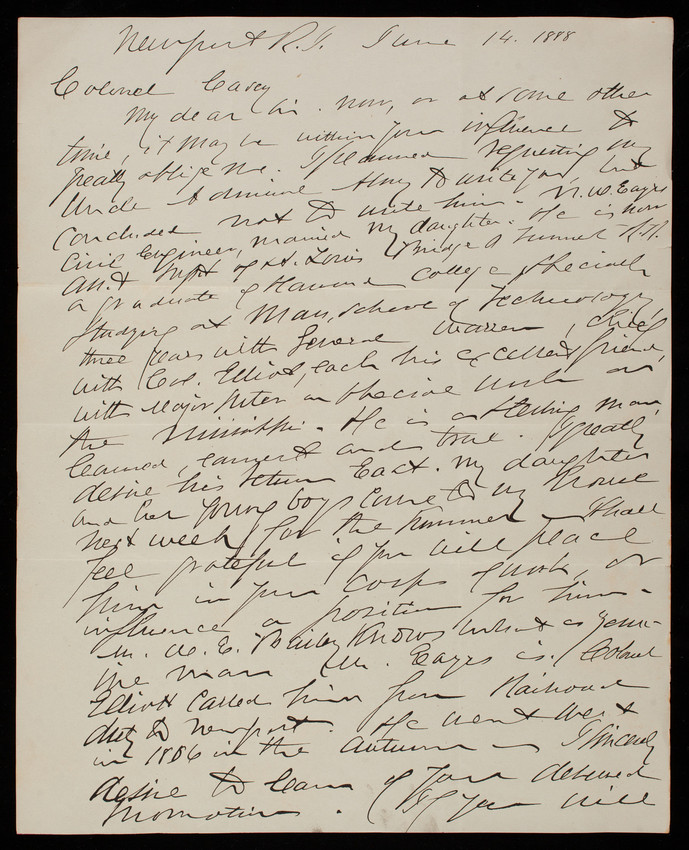 Newport R.I. June 14. 1888
Colonel Casey
My dear Sir. Now, or at some other
time, it may be within your influence to
greatly oblige me. I planned requesting my
Uncle Admiral to write you, but
concluded not to write him. N.W. Eayrs
Civil Engineer, married my daughter. He is now
Ass.t Supt of St. Louis Bridge & Tunnel R.R.
a graduate of Harvard College specially
studying at Mass, School of Technology,
three years with General Warren, chief,
with Col. Elliot, each his excellent friend,
with Major Suter on special work on
the Mississippi. He is a sterling man,
learned, earnest and true. I greatly
desire his return East. My daughter
and her young boys come to my house
next week for the summer. I shall
feel grateful if you will place
him in your Corps of work, or
influence a position for him.
M. de. C. Bailey knows what a genu-
ine man Mr. Eayrs is. Colonel
Elliot called him from Railroad
duty to Newport. He went West
in 1886 in the Autumn. I sincerely
desire to learn of your deserved
promotion. If you will